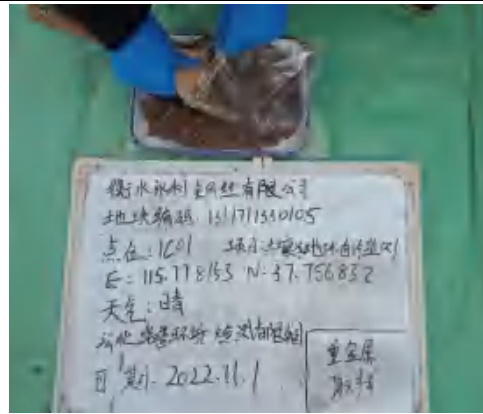 衡水永利金网丝有限公司
地块编码 1311711330105
点位:1C01 项目:土壤及地下水自行监测
E: 115.778153 N: 37.756832
天气:晴
环境 检测有限公司
日期: 2022.11.1
重金属
取样